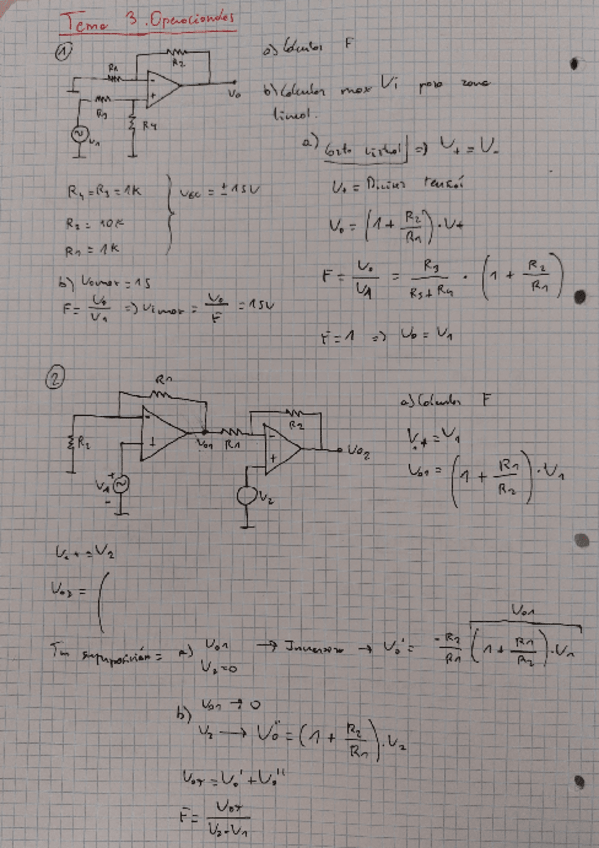 Tema 3. Operacionales
①
R1
R2
R3
R4
V1
Vo
a) Calcular F
b) Calcular max Vi para zona
lineal.
a) Corto virtual => V+ = V-
V+ = Divisor tensión
Vo = (1 + R2/R1) · V+
F = Vo/V1 = R3/(R3+R4) · (1 + R2/R1)
F=1 => Vo = V1
R4 = R3 = 1K
R2 = 10K
R1 = 1K
Vcc = ±15V
b) Vomax = 15
F = Vo/V1 => Vimax = Vo/F = 15V
②
R1
R2
V1
Vo1
R1
R2
V2
Vo2
a) Calcular F
V+ = V1
Vo1 = (1 + R1/R2) · V1
V+ = V2
Vo2 = (
Tm superposición = a) Vo1
V2=0
→ Inversor → Vo' = -R2/R1 (1 + R1/R2) · V1
Vo1
b) Vo1 → 0
V2 → Vo'' = (1 + R2/R1) · V2
VoT = Vo' + Vo''
F = VoT/(V2-V1)